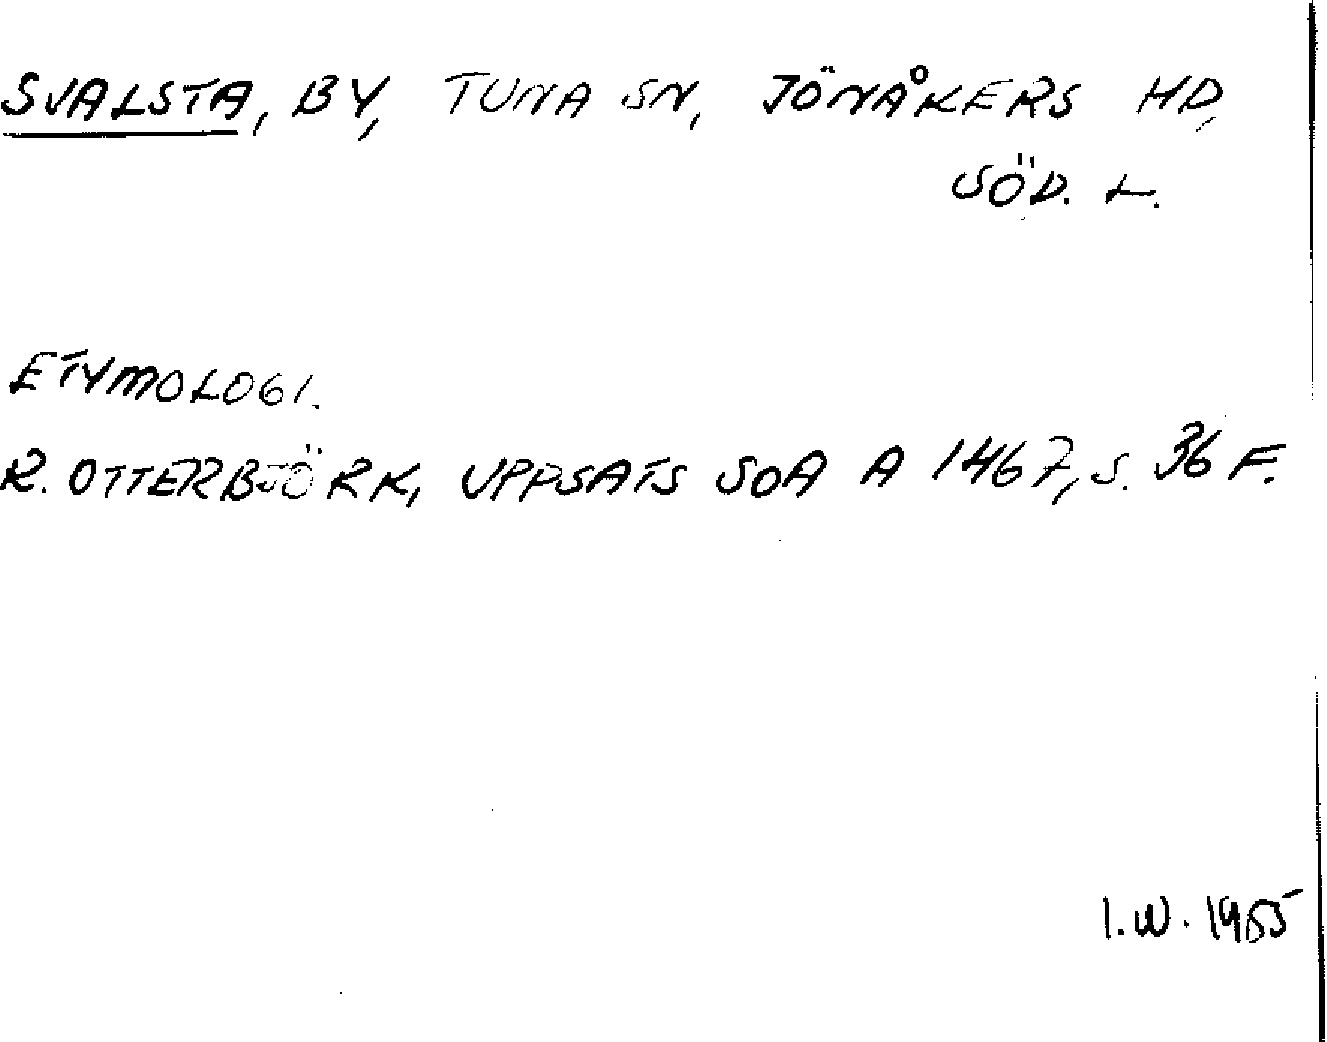 SVALSTA, BY, TUNA SN, JÖNÅKERS HD,
SÖD. L.
ETYMOLOGI.
R. OTTERBJÖRK, UPPSATS SOA A 1467, S. 36 F.
I.W. 1985